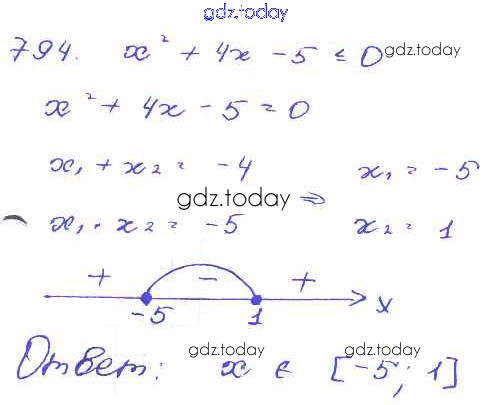 gdz.today
794. x² + 4x - 5 ≤ 0 gdz.today
x² + 4x - 5 = 0
x₁ + x₂ = -4 x₁ = -5
gdz.today ⇒
x₁ · x₂ = -5 x₂ = 1
+ - +
-5 1 x
gdz.today gdz.today
Ответ: x ∈ [-5; 1]